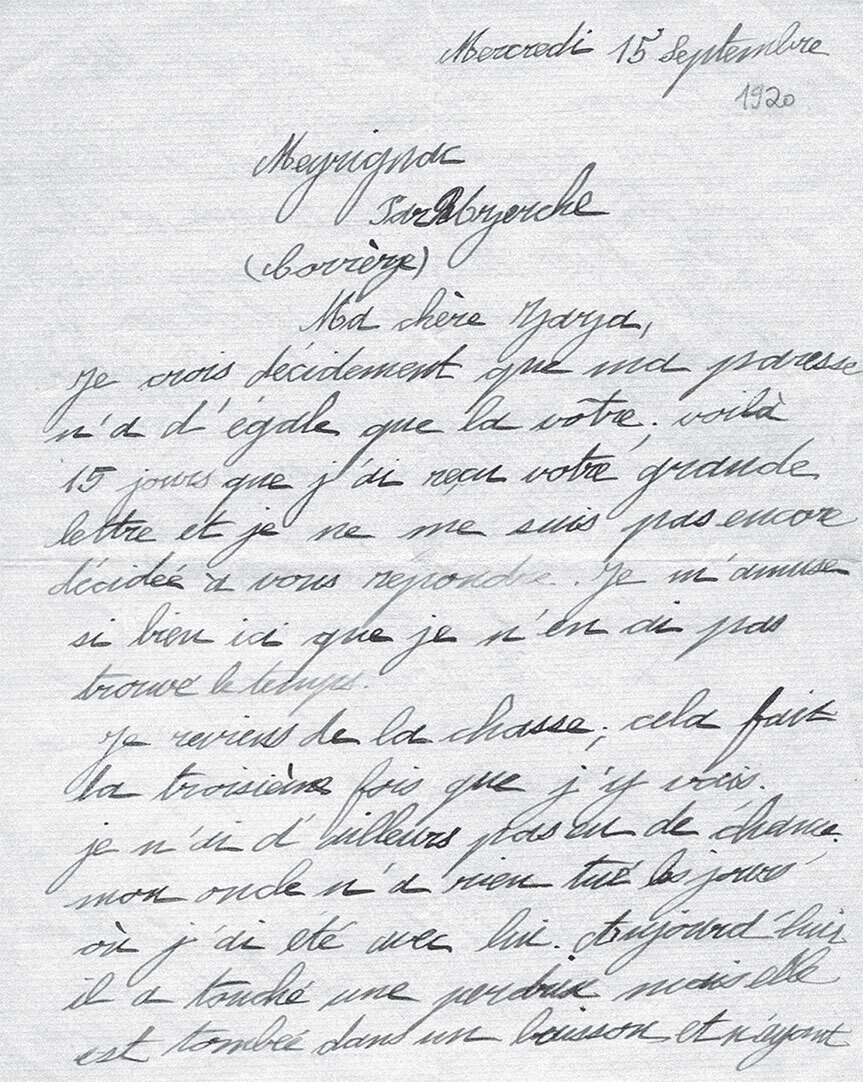 Mercredi 15 Septembre
1920
Meyrignac
Par Uzerche
(Corrèze)
Ma chère Zaza,
Je crois décidement que ma paresse
n'a d'égale que la vôtre; voilà
15 jours que j'ai reçu votre grande
lettre et je ne me suis pas encore
décidée à vous repondre. Je m'amuse
si bien ici que je n'en ai pas
trouvé le temps.
Je reviens de la chasse; cela fait
la troisième fois que j'y vais.
je n'ai d'ailleurs pas eu de chance
mon oncle n'a rien tué les jours
où j'ai été avec lui. Aujourd'hui
il a touché une perdrix mais elle
est tombée dans un buisson et n'ayant